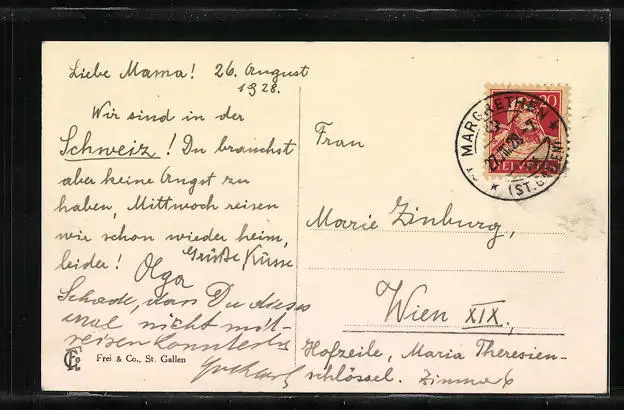 Liebe Mama! 26. August
1928.
Wir sind in der
Schweiz! Du brauchst
aber keine Angst zu
haben, Mittwoch reisen
wir schon wieder heim,
leider! Grüße Küsse
Olga
Schade, dass Du dieses
mal nicht mit-
reisen konntest
Frei & Co., St. Gallen
20
HELVETIA
MARGRETHEN
(ST. GALLEN)
Frau
Marie Zinburg,
Wien XIX.,
Hofzeile, Maria Theresien-
schlössel. Zimmer 6